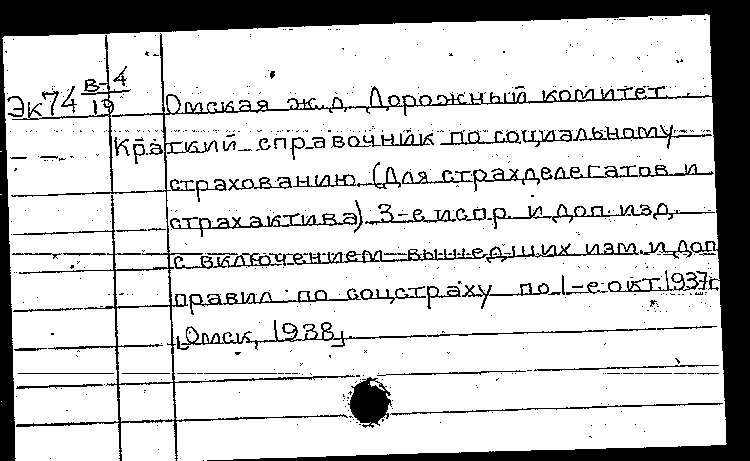 Эк74 В-4/19 Омская ж.д. Дорожный комитет.
Краткий справочник по социальному
страхованию. (Для страхделегатов и
страхактива) 3-е испр. и доп. изд.
с включением вышедших изм. и доп
правил по соцстраху по 1-е окт. 1937г.
[Омск, 1938].